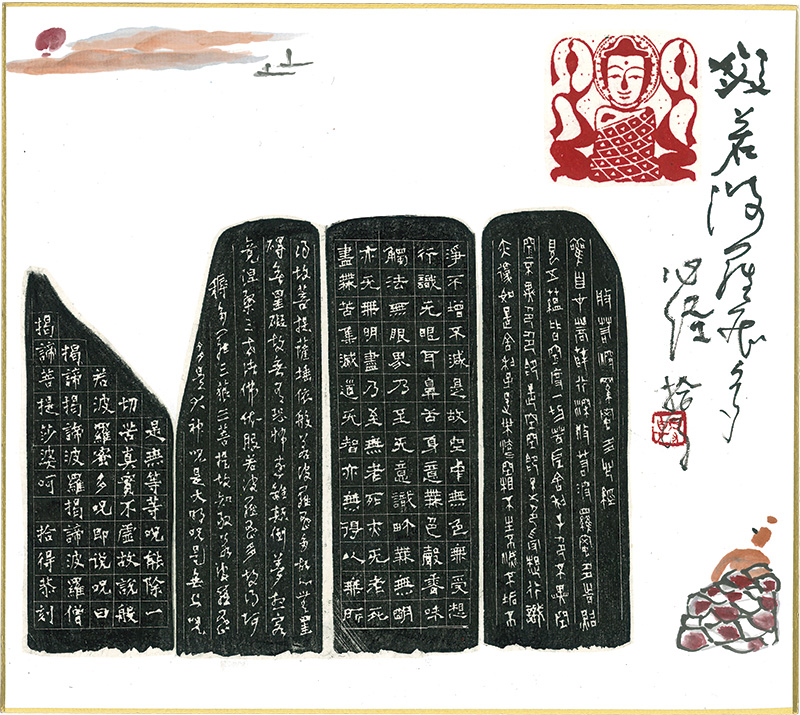 般若波羅蜜多
心經 拾得
般若波羅蜜多心經
觀自在菩薩行深般若波羅蜜多時照
見五蘊皆空度一切苦厄舍利子色不異空
空不異色色即是空空即是色受想行識
亦復如是舍利子是諸法空相不生不滅不垢不
淨不增不減是故空中無色無受想
行識无眼耳鼻舌身意無色聲香味
觸法無眼界乃至无意識界無無明
亦无無明盡乃至無老死亦无老死
盡無苦集滅道无智亦無得以無所
得故菩提薩埵依般若波羅蜜多故心無罣
礙無罣礙故無有恐怖遠離顛倒夢想究
竟涅槃三世諸佛依般若波羅蜜多故得阿
耨多羅三藐三菩提故知般若波羅蜜
多是大神呪是大明呪是無上呪
是無等等呪能除一
切苦真實不虛故說般
若波羅蜜多呪即説呪曰
揭諦揭諦波羅揭諦波羅僧
揭諦菩提莎婆呵 拾得恭刻